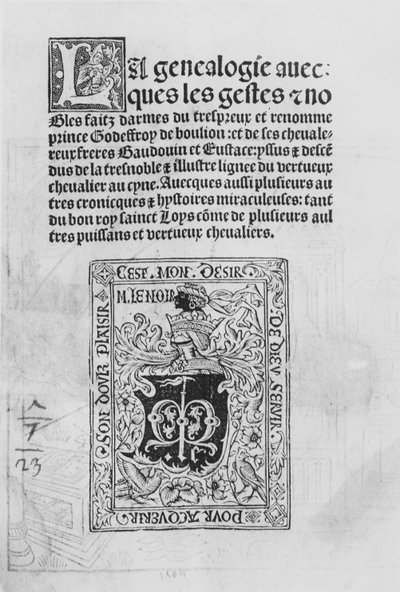 LA genealogie auec⸗
ques les gestes ⁊ no
Bles faitz darmes du trespreux et renomme
prince Godeffroy de boulion: et de ses cheuale⸗
reux freres Baudouin et Eustace: yssus ⁊ descē
dus de la tresnoble ⁊ illustre lignee du vertueux
cheualier au cyne. Auecques aussi plusieurs au
tres cronicques ⁊ hystoires miraculeuses: tant
du bon roy sainct Loys cōme de plusieurs aul
tres puissans et vertueux cheualiers.
CEST · MON · DESIR
M. LE NOIR
DE DIEV SERVIR
POVR ACQVERIR
SON DOVLX PLAISIR
7
23